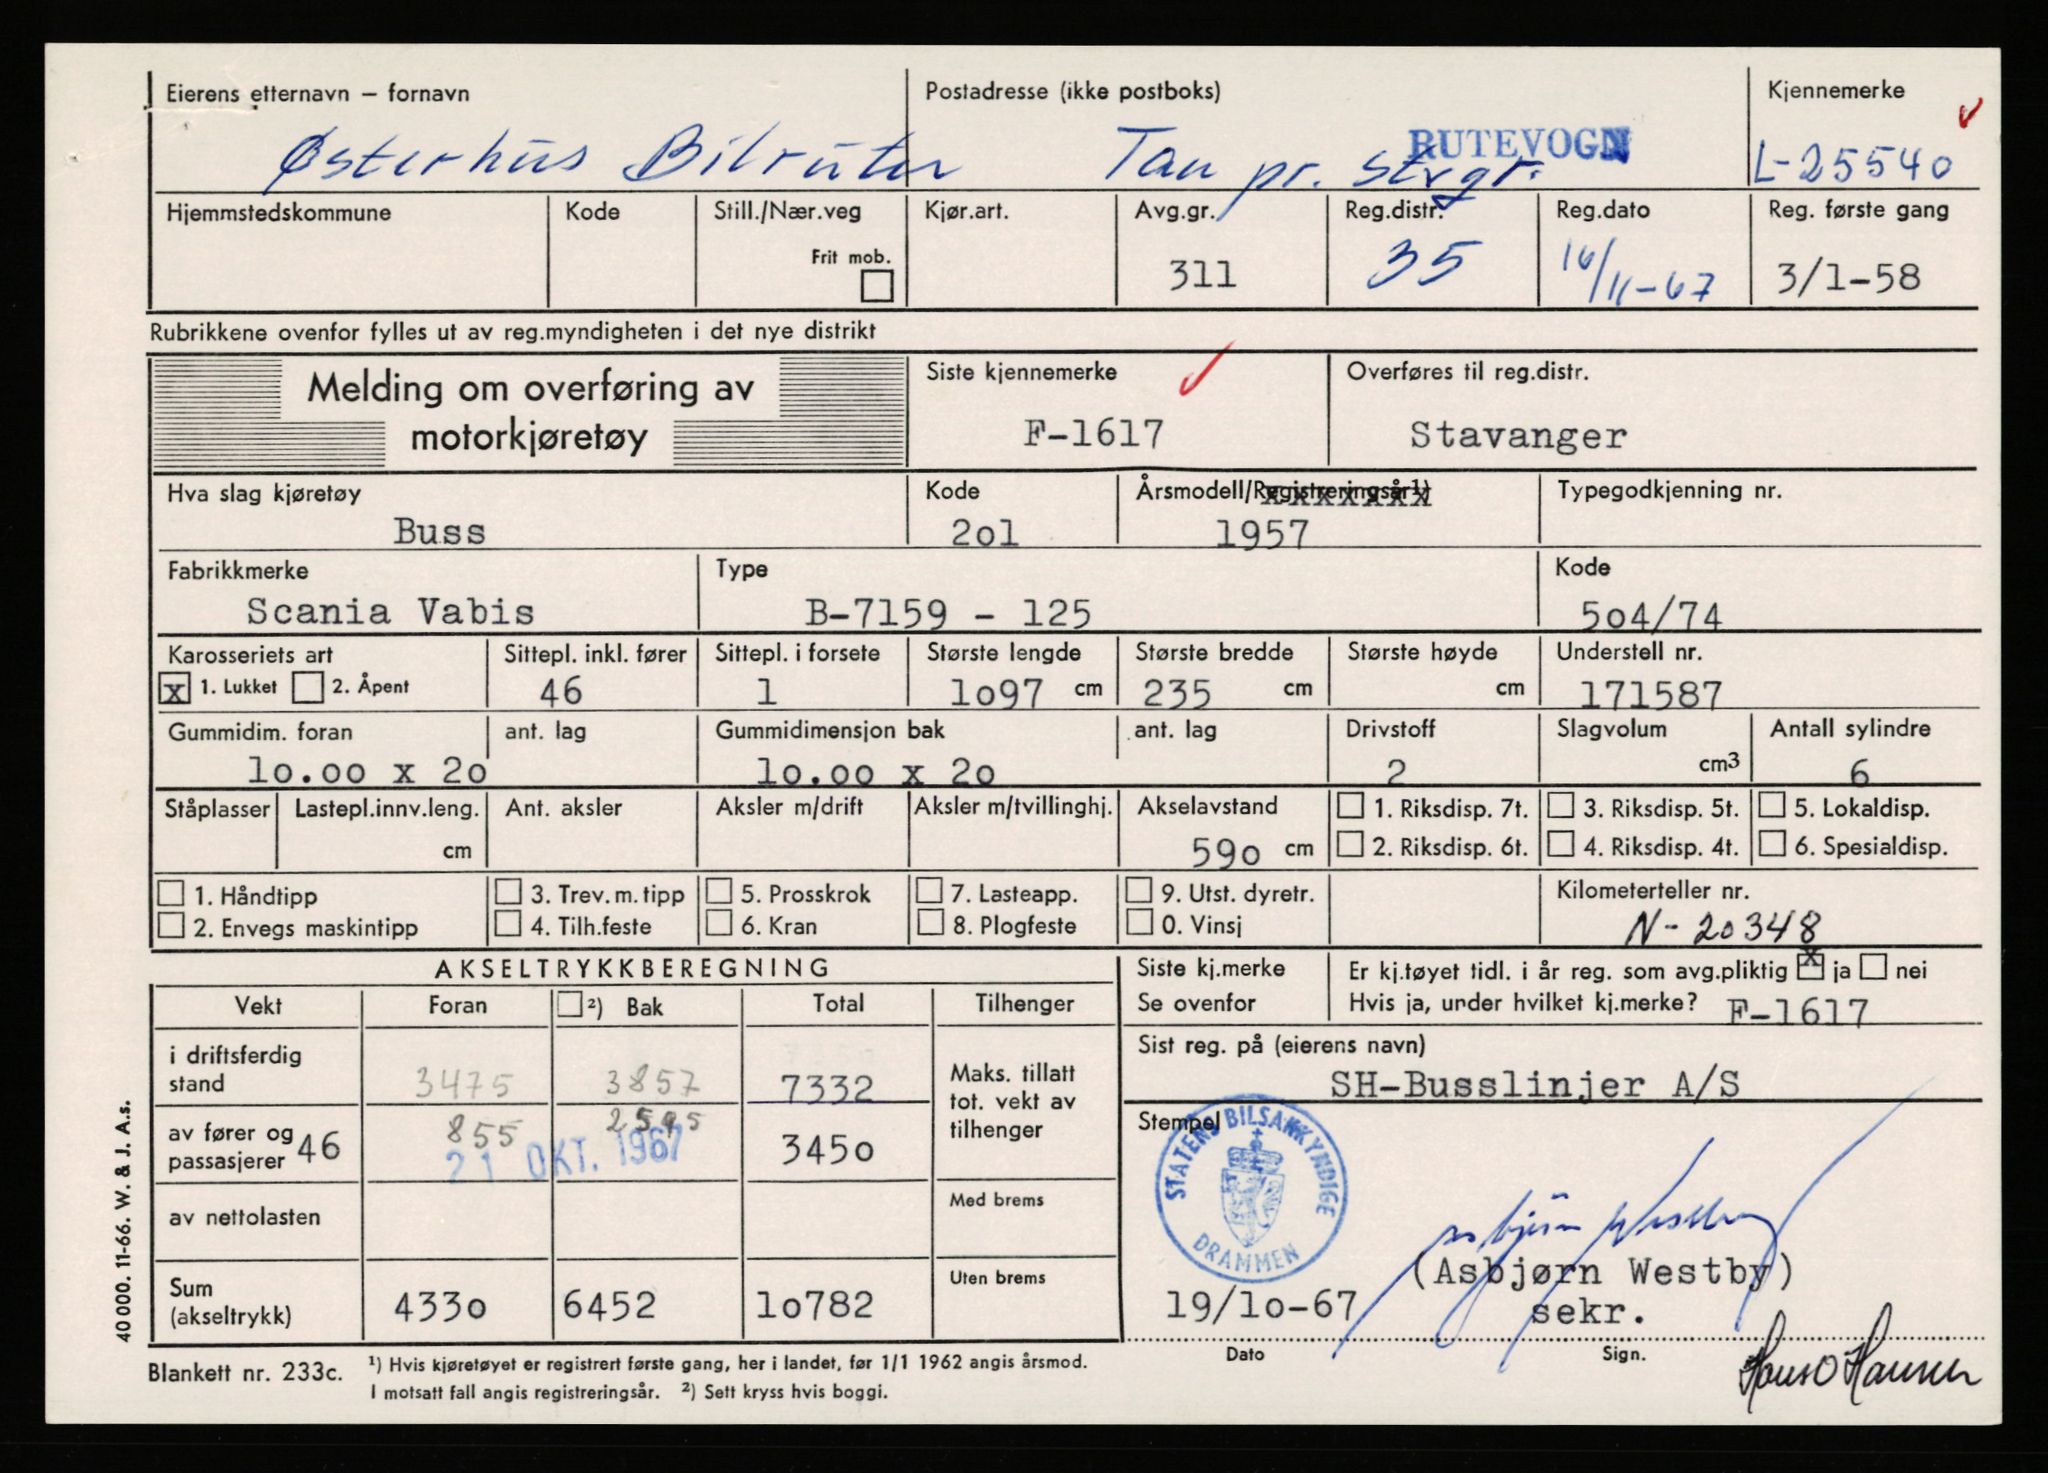 Eierens etternavn – fornavn
Postadresse (ikke postboks)
Kjennemerke
Østerhus Bilruter
Tau pr. Stvgr.
RUTEVOGN
L-25540
Hjemmstedskommune
Kode
Still./Nær.veg
Frit mob.
Kjør.art.
Avg.gr.
311
Reg.distr.
35
Reg.dato
16/11-67
Reg. første gang
3/1-58
Rubrikkene ovenfor fylles ut av reg.myndigheten i det nye distrikt
Melding om overføring av
motorkjøretøy
Siste kjennemerke
F-1617
Overføres til reg.distr.
Stavanger
Hva slag kjøretøy
Buss
Kode
2o1
Årsmodell/Registreringsår¹)
xxxxxxx
1957
Typegodkjenning nr.
Fabrikkmerke
Scania Vabis
Type
B-7159 - 125
Kode
5o4/74
Karosseriets art
x 1. Lukket 2. Åpent
Sittepl. inkl. fører
46
Sittepl. i forsete
1
Største lengde
1o97 cm
Største bredde
235 cm
Største høyde
cm
Understell nr.
171587
Gummidim. foran
1o.oo x 2o
ant. lag
Gummidimensjon bak
1o.oo x 2o
ant. lag
Drivstoff
2
Slagvolum
cm3
Antall sylindre
6
Ståplasser
Lastepl.innv.leng.
cm
Ant. aksler
Aksler m/drift
Aksler m/tvillinghj.
Akselavstand
59o cm
1. Riksdisp. 7t.
2. Riksdisp. 6t.
3. Riksdisp. 5t.
4. Riksdisp. 4t.
5. Lokaldisp.
6. Spesialdisp.
1. Håndtipp
2. Envegs maskintipp
3. Trev. m. tipp
4. Tilh.feste
5. Prosskrok
6. Kran
7. Lasteapp.
8. Plogfeste
9. Utst. dyretr.
0. Vinsj
Kilometerteller nr.
N-20348
AKSELTRYKKBEREGNING
Vekt
Foran
²) Bak
Total
Tilhenger
i driftsferdig
stand
3475
3857
7332
av fører og
passasjerer 46
855
2595
345o
21 OKT. 1967
av nettolasten
Sum
(akseltrykk)
433o
6452
1o782
Maks. tillatt
tot. vekt av
tilhenger
Med brems
Uten brems
Siste kj.merke
Se ovenfor
Er kj.tøyet tidl. i år reg. som avg.pliktig x ja nei
Hvis ja, under hvilket kj.merke? F-1617
Sist reg. på (eierens navn)
SH-Busslinjer A/S
Stempel
STATENS BILSAKKYNDIGE
DRAMMEN
Asbjørn Westby
(Asbjørn Westby)
sekr.
19/1o-67
Dato
Sign.
Hans O Hansen
Blankett nr. 233c.
¹) Hvis kjøretøyet er registrert første gang, her i landet, før 1/1 1962 angis årsmod.
I motsatt fall angis registreringsår. ²) Sett kryss hvis boggi.
40 000. 11-66. W. & J. A.s.